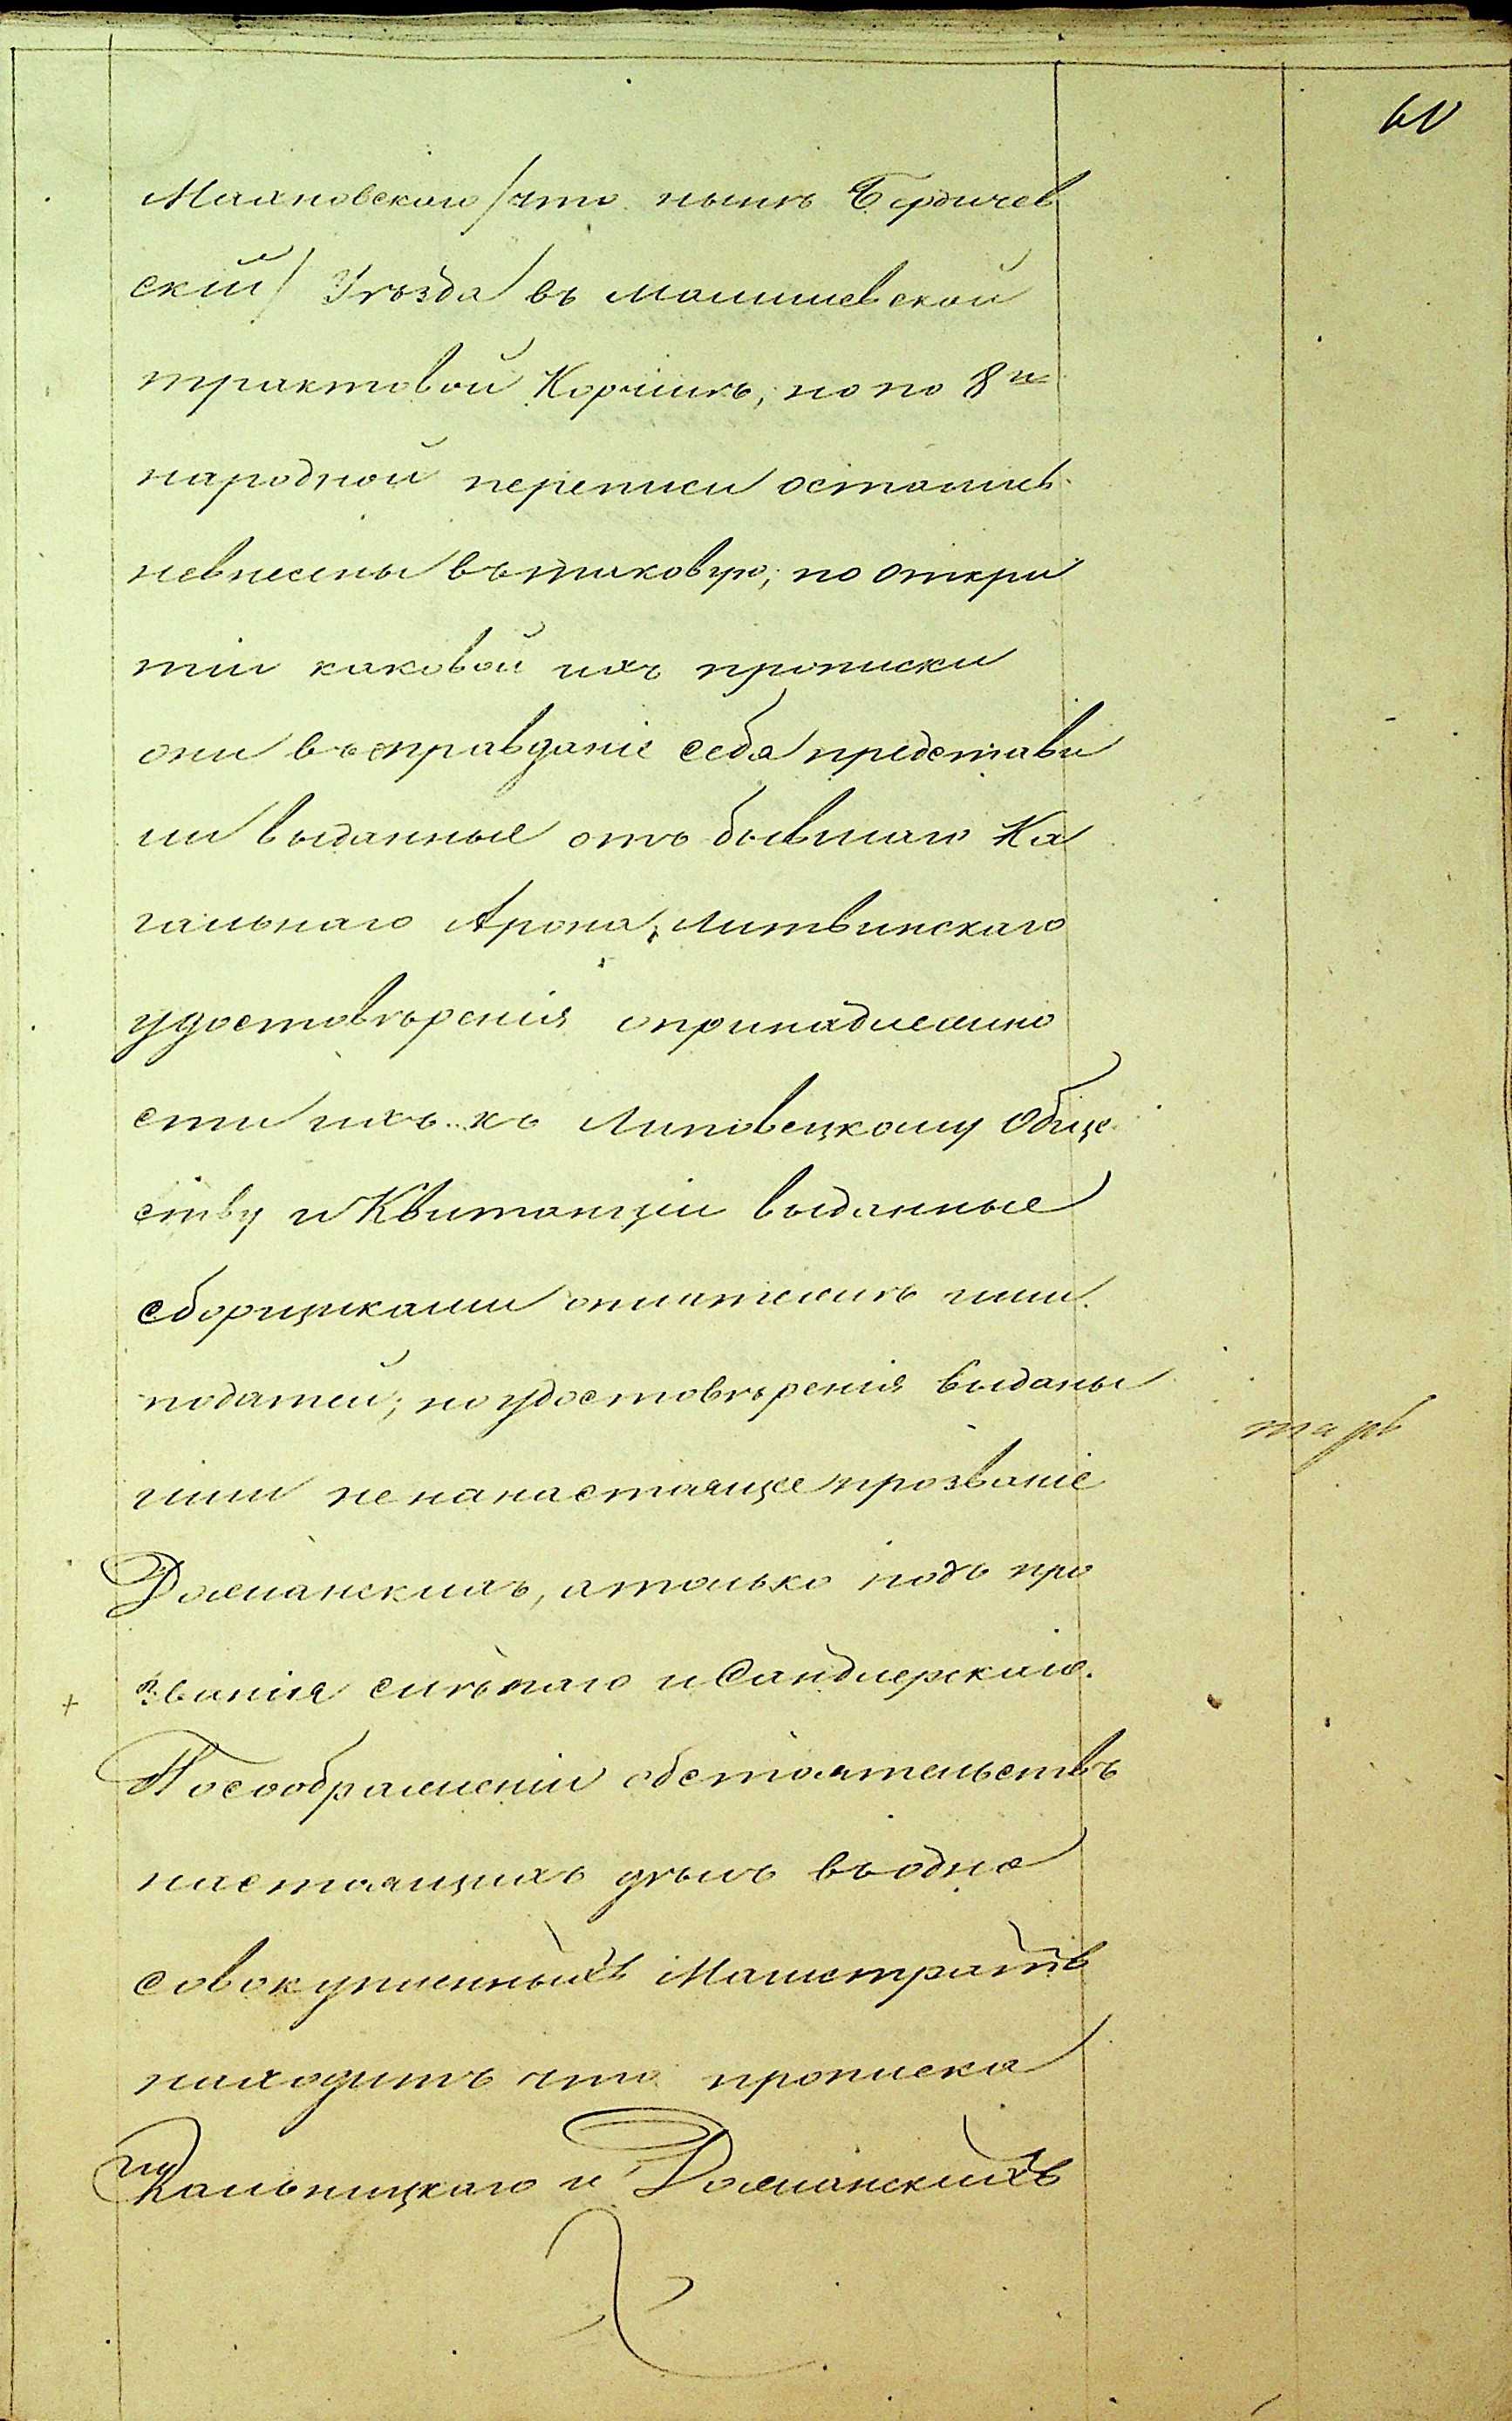 60
Махновского /что нынѣ Бердичев
скій/ Уѣзда въ Малишевской
трактовой Корчмѣ, но по 8й
народной переписи остались
невнесены вътаковую; по откри
тіи каковой ихъ прописки
они въоправданіе себя представи
ли выданные отъ бывшаго Ка
гальнаго Арона Литвинскаго
удостовѣренія опринадлежно
сти ихъ къ Липовецкому Обще
ству и Квитанціи выданные
сборщиками оплатежѣ ими
податей; но удостовѣренія выданы
ими не нанастоящее прозваніе
Должанскихъ, атолько подъ про
званія Слѣпаго и Сандлерскаго.
Посоображеніи обстоятельствъ
настоящихъ дѣлъ въодно
совокупленныхъ Магистратъ
находитъ что прописка
Кальницкаго и Должанскихъ